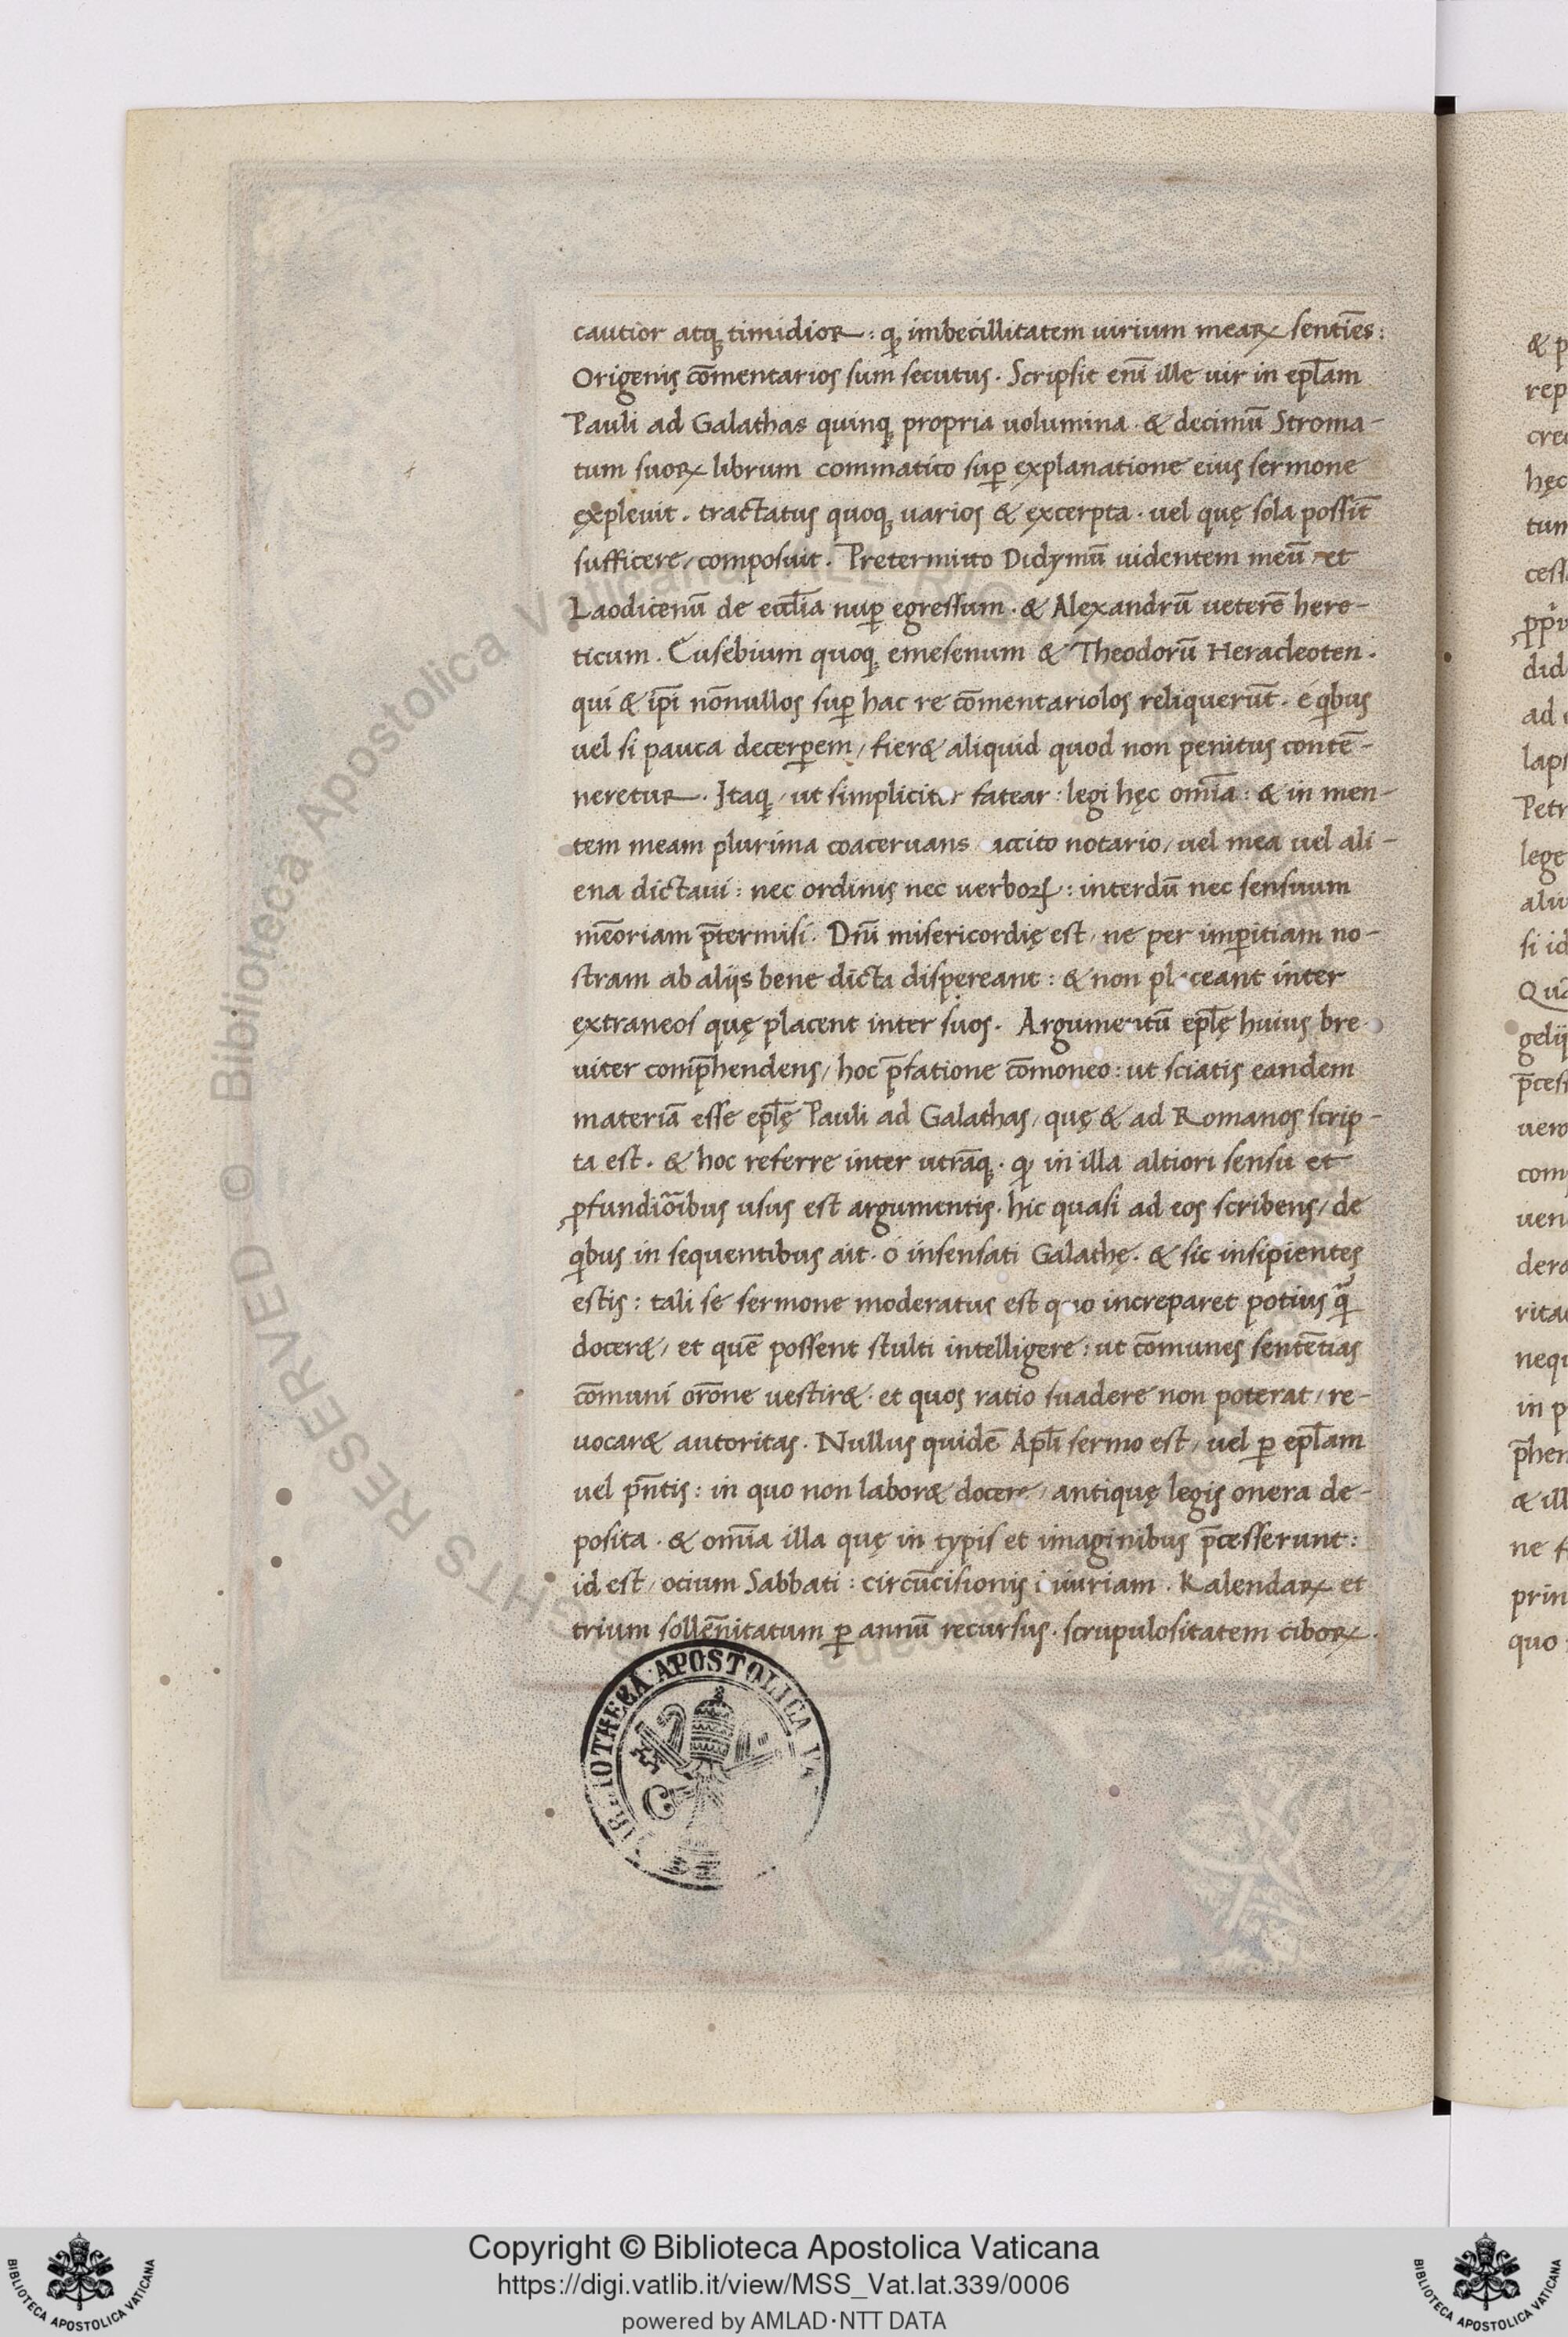 cautior atq; timidior: q; imbecillitatem uirium mearꝝ sentiēs:
Origenis cōmentarios sum secutus. Scripsit enī ille uir in ep̄lam
Pauli ad Galathas quinq; propria uolumina. & decimū Stroma-
tum suorꝝ librum commatico sup̱ explanatione eius sermone
explevit. tractatus quoq; uarios & excerpta. vel quę sola possīt
sufficere/ composuit. Pretermitto Didymū uidentem meū/ et
Laodicenū de eccl̄ia nup̱ egressum. & Alexandrū ueterē here-
ticum. Eusebium quoq; emesenum & Theodorū Heracleoten.
qui & ip̄i nōnullos sup̱ hac re cōmentariolos reliquerūt. é qbus
uel si pauca decerp̱em/ fier& aliquid quod non penitus contē-
neretur. Itaq;/ ut simpliciter fatear: legi hęc om̄ia: & in men-
tem meam plurima coaceruans accito notario/ uel mea uel ali-
ena dictaui: nec ordinis nec uerborꝝ: interdū nec sensuum
mēoriam p̄termisi. Dn̄i misericordię est/ ne per imp̱itiam no-
stram ab aliis bene dicta dispereant: & non placeant inter
extraneos quę placent inter suos. Argumentū ep̄lę huius bre
uiter comp̄hendens/ hoc p̄fatione cōmoneo: ut sciatis eandem
materiā esse ep̄lę Pauli ad Galathas/ quę & ad Romanos scrip-
ta est. & hoc referre inter utrāq;. q; in illa altiori sensu et
ꝓfundiōribus usus est argumentis. hic quasi ad eos scribens/ de
qbus in sequentibus ait. ó insensati Galathę. & sic insipientes
estis: tali se sermone moderatus est quo increparet potius q̄
docer&/ et quē possent stulti intelligere: ut cōmunes sentētias
cōmuni orōne uestir&. et quos ratio suadere non poterat/ re-
uocar& autoritas. Nullus quidē Ap̄li sermo est/ uel p̱ ep̄lam
uel p̄ntis: in quo non labor& docere/ antiquę legis onera de-
posita. & om̄ia illa quę in typis et imaginibus p̄cesserunt:
id est/ ocium Sabbati: circūcisionis iniuriam. Kalendarꝝ et
trium sollēnitatum p̱ annū recursus. scrupulositatem ciborꝝ.
& p
rep
cre
hęc
tun
did
ad
Petr
lege
alu
si id
geli
uero
com
uen
dera
nequ
in p
& ill
ne f
prin
quo
APOSTOLICA
Biblioteca Apostolica Vaticana
© RESERVED
Copyright © Biblioteca Apostolica Vaticana
https://digi.vatlib.it/view/MSS_Vat.lat.339/0006
powered by AMLAD·NTT DATA
BIBLIOTECA APOSTOLICA VATICANA
BIBLIOTECA APOSTOLICA VATICANA